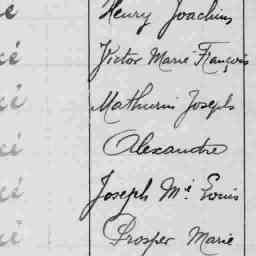 Henry Joachim
Victor Marie François
Mathurin Joseph
Alexandre
Joseph Mie Louis
Prosper Marie